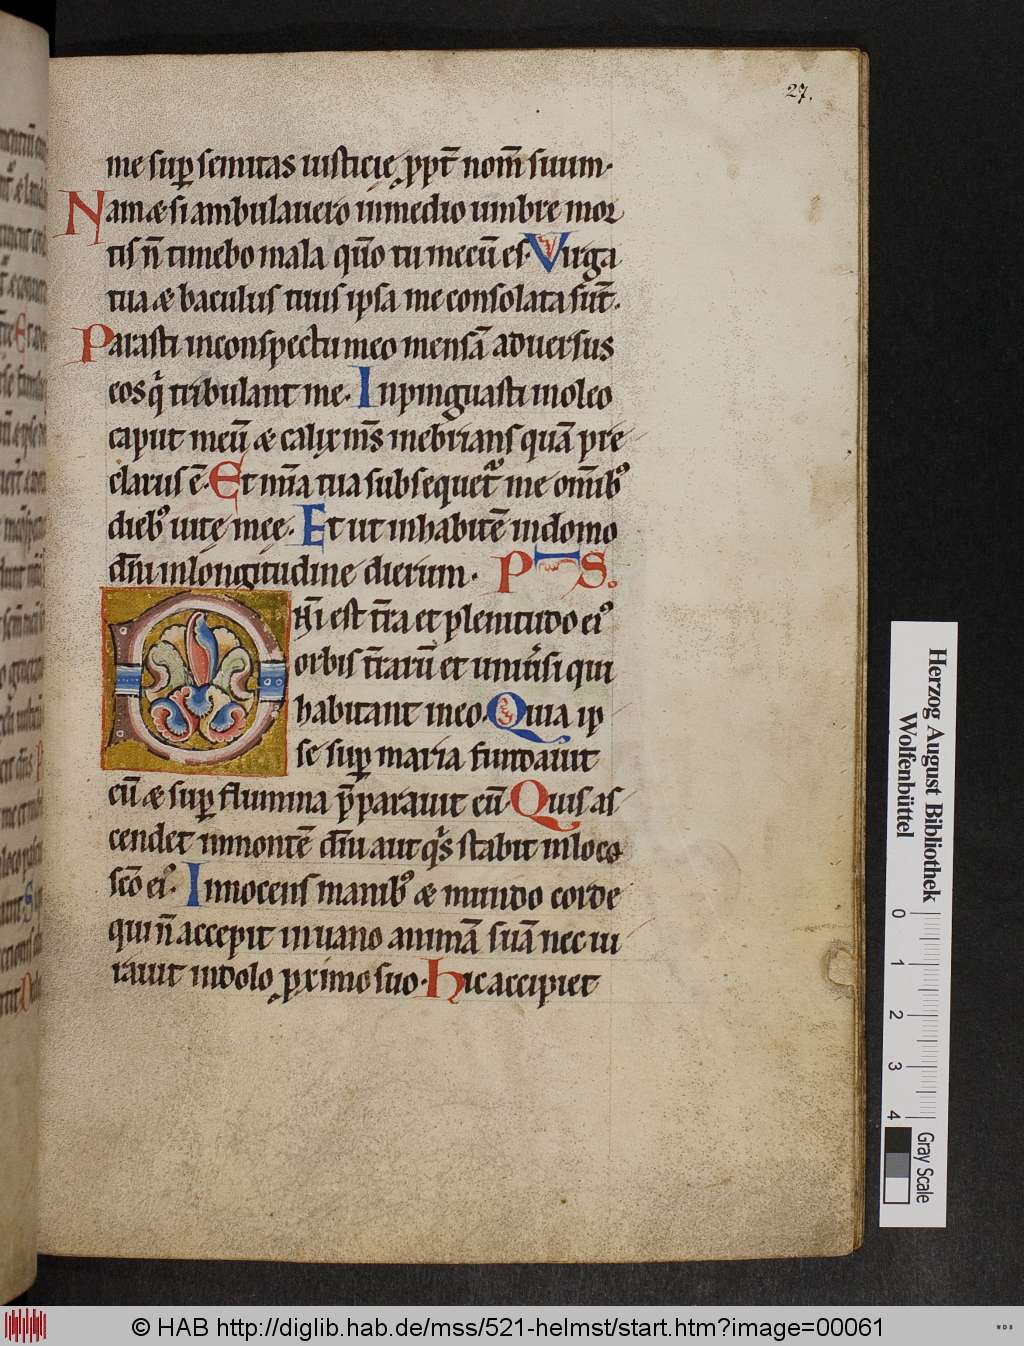 27.
me sup̱ semitas iusticię ꝓpt̄ nom̄ suum·
Nam æ si ambulauero in medio umbre mor
tis n̄ timebo mala qm̄o tu mecū es· Virga
tua æ baculus tuus ipsa me consolata sūt·
Parasti in conspectu meo mensā aduersus
eos q̄ tribulant me· Inpinguasti in oleo
caput meū æ calix m̄s inebrians quā pre
clarus ē· Et mīa tua subsequet᷑ me om̄ibꝰ
diebꝰ uitę meę· Et ut inhabitē in domo
dn̄i in longitudine dierum· PS.
Dn̄i est t̄ra et plenitudo eiꝰ
orbis t̄rarū et uniu̾si qui
habitant in eo· Quia ip
se sup̱ maria fundauit
eū æ sup̱ flumina p̄parauit eū· Quis as
cendet in montē dn̄i aut qͥs stabit in loco
sc̄o eiꝰ· Innocens manibꝰ æ mundo corde
qui n̄ accepit in uano animā suā nec iu
rauit in dolo ꝓximo suo· Hic accipiet
Herzog August Bibliothek
Wolfenbüttel
0 1 2 3 4
Gray Scale
© HAB http://diglib.hab.de/mss/521-helmst/start.htm?image=00061